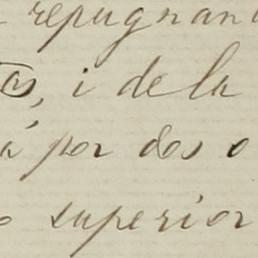 repugnan
as, i de la
a por dos o
o superior